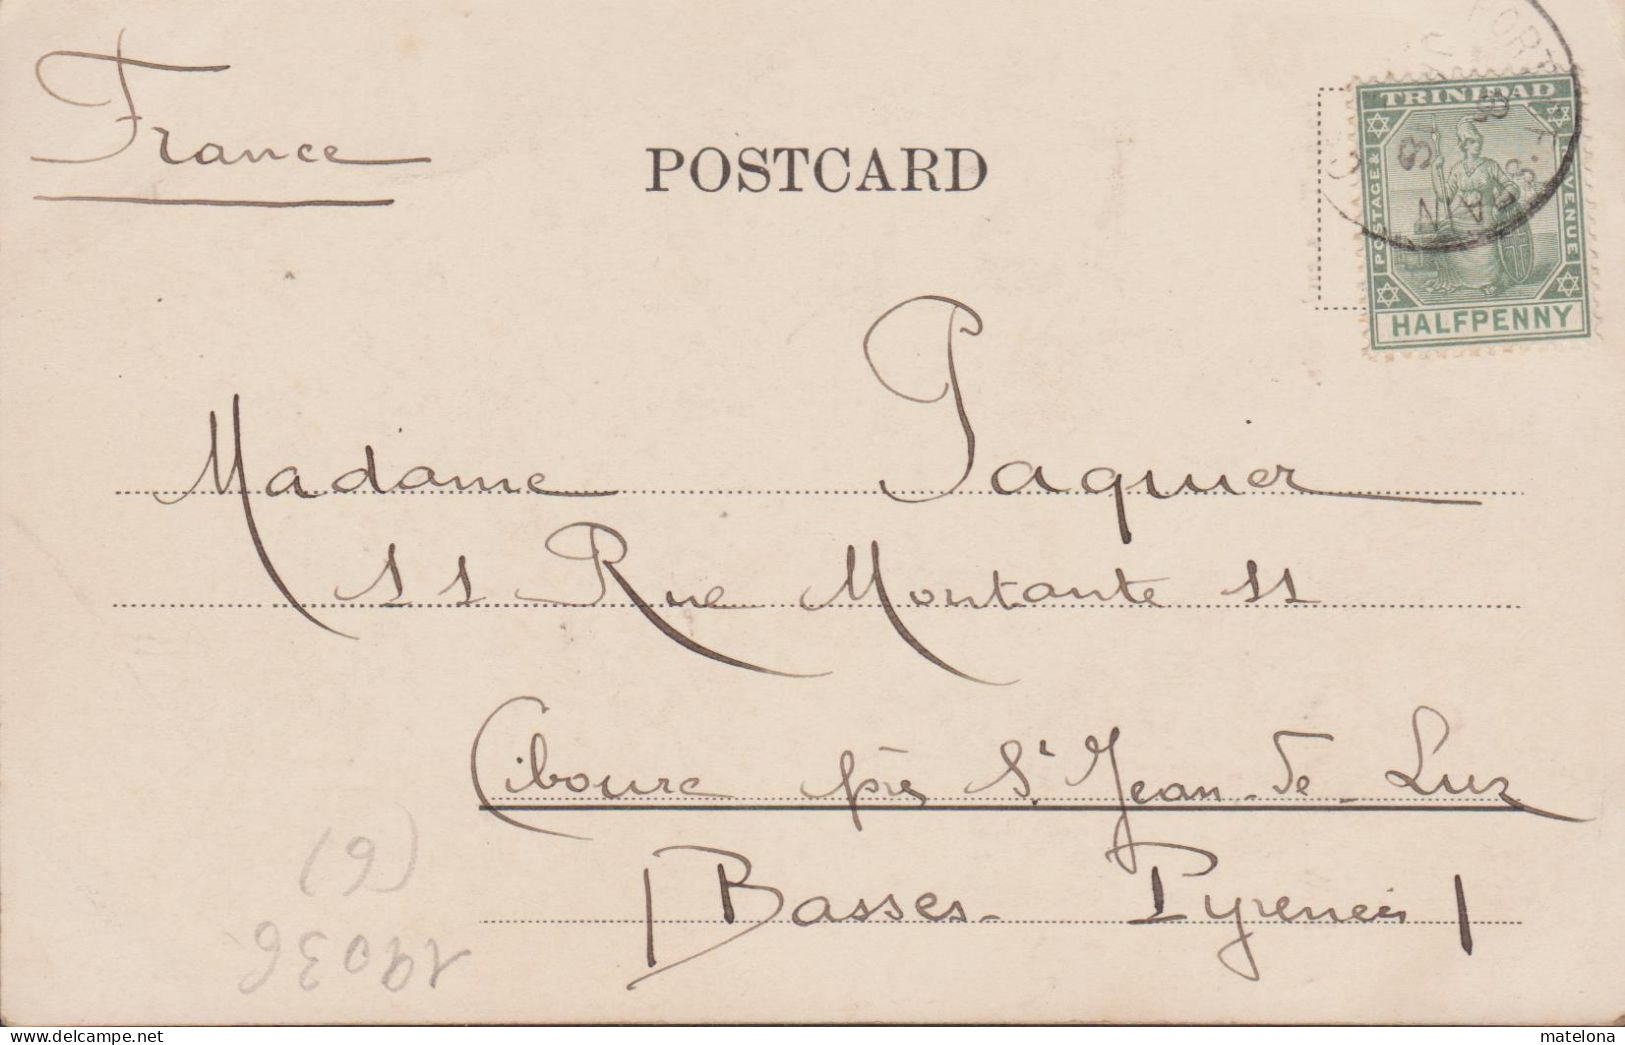 France
POSTCARD
TRINIDAD
POSTAGE & REVENUE
HALFPENNY
Madame Paquier
11 Rue Montante 11
Ciboure près St Jean-de-Luz
(Basses-Pyrénées)
(6)
19036
matelona